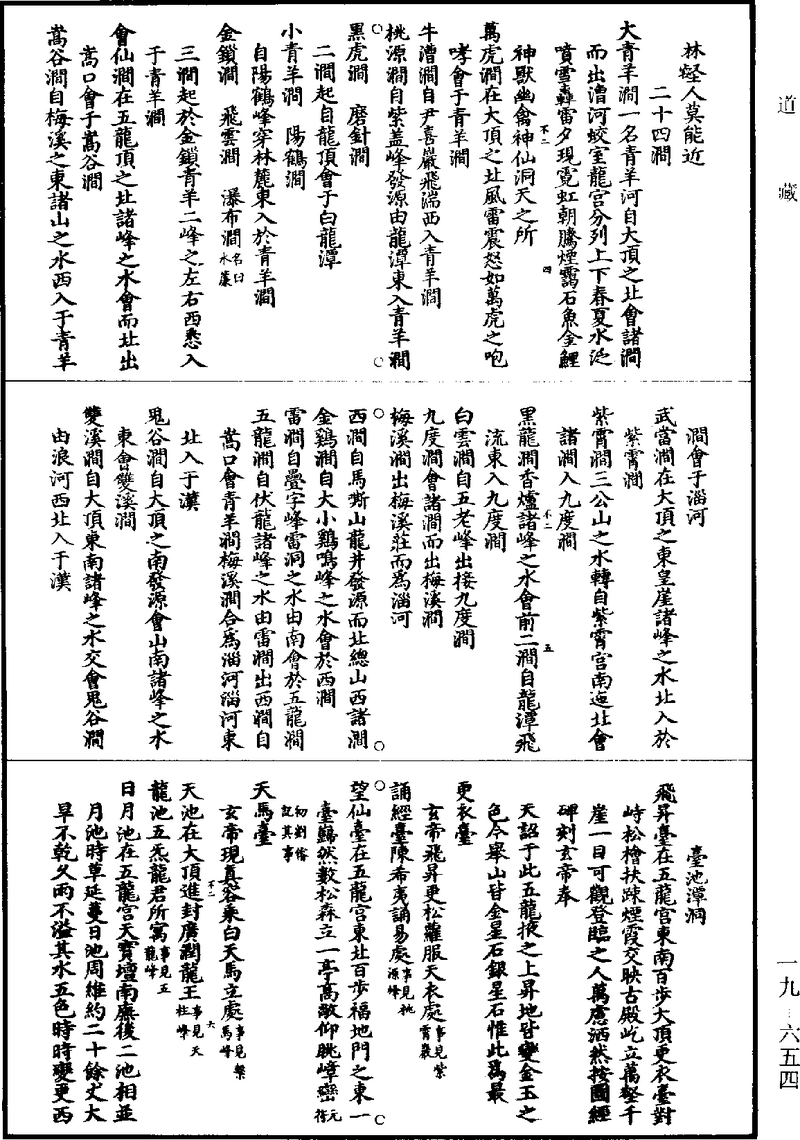 道藏
林壑人莫能近
二十四澗
大青羊澗一名青羊河自大頂之北會諸澗
而出漕河蛟室龍宮分列上下春夏水泛
噴雪轟雷夕現霓虹朝騰煙靄石魚金鯉
神獸幽禽神仙洞天之所
不二 四
萬虎澗在大頂之北風雷震怒如萬虎之咆
哮會于青羊澗
牛漕澗自尹喜巖飛湍西入青羊澗
桃源澗自紫蓋峰發源由龍潭東入青羊澗
黑虎澗 磨針澗
二澗起自龍頂會于白龍潭
小青羊澗 陽鶴澗
自陽鶴峰穿林麓東入於青羊澗
金鎖澗 飛雲澗 瀑布澗名曰水簾
三澗起於金鎖青羊二峰之左右西悉入
于青羊澗
會仙澗在五龍頂之北諸峰之水會而北出
蒿口會于蒿谷澗
蒿谷澗自梅溪之東諸山之水西入于青羊
澗會于淄河
武當澗在大頂之東皇崖諸峰之水北入於
紫霄澗
紫霄澗三公山之水轉自紫霄宮南迤北會
諸澗入九度澗
不二 五
黑龍澗香爐諸峰之水會前二澗自龍潭飛
流東入九度澗
白雲澗自五老峰出接九度澗
九度澗會諸澗而出梅溪澗
梅溪澗出梅溪莊而為淄河
西澗自馬嘶山龍井發源而北總山西諸澗
金鷄澗自大小鷄鳴峰之水會於西澗
雷澗自疊字峰雷洞之水由南會於五龍澗
五龍澗自伏龍諸峰之水由雷澗出西澗自
蒿口會青羊澗梅溪澗合為淄河淄河東
北入于漢
鬼谷澗自大頂之南發源會山南諸峰之水
東會雙溪澗
雙溪澗自大頂東南諸峰之水交會鬼谷澗
由浪河西北入于漢
臺池潭洞
飛昇臺在五龍宮東南百步大頂更衣臺對
峙松檜扶疎煙霞交映古殿屹立萬壑千
崖一目可觀登臨之人萬慮洒然按圖經
碑刻玄帝奉
天詔于此五龍掖之上昇地皆變金玉之
色今舉山皆金星石銀星石惟此為最
更衣臺
玄帝飛昇更松蘿服天衣處事見紫霄巖
誦經臺陳希夷誦易處事見桃源峰
望仙臺在五龍宮東北百步福地門之東一
臺巋然數松森立一亭高敞仰眺嶂巒元符初劉傪記其事
天馬臺
玄帝現真容乘白天馬立處事見槩馬峰
不二 六
天池在大頂進封廣潤龍王事見天柱峰
龍池五炁龍君所寓事見五龍峰
日月池在五龍宮天寶壇南廡後二池相並
月池時草延蔓日池周維約二十餘丈大
旱不乾久雨不溢其水五色時時變更西
一九–六五四